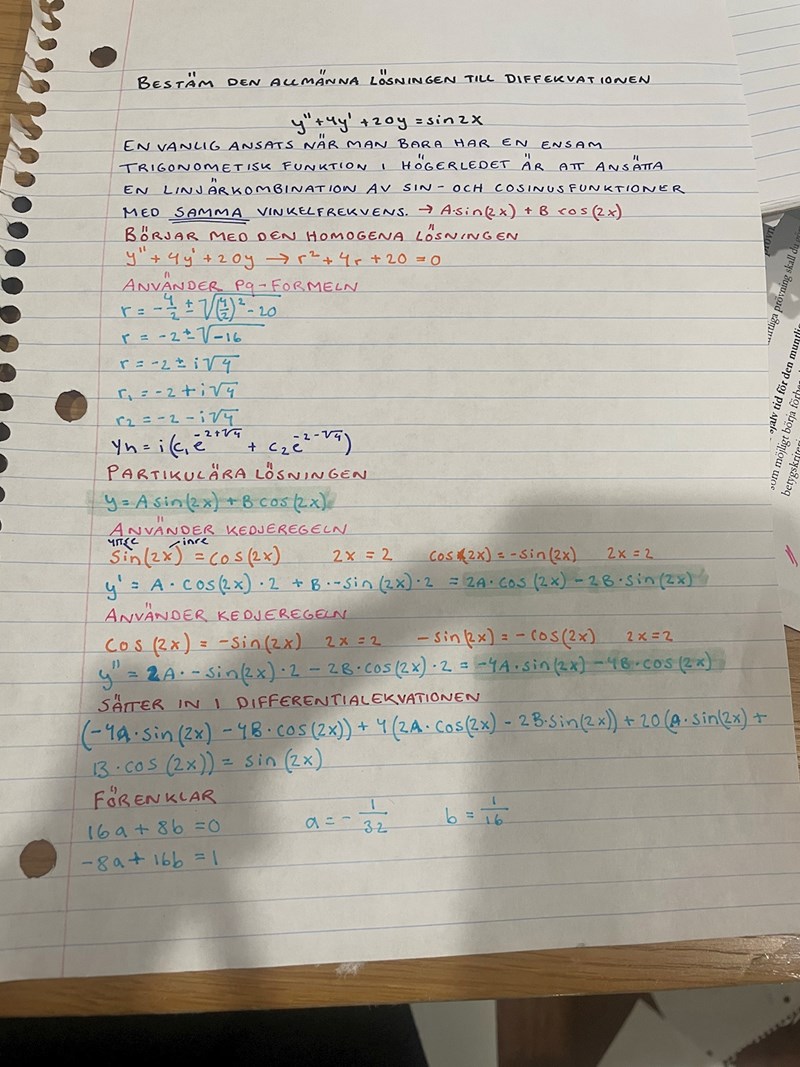 BESTÄM DEN ALLMÄNNA LÖSNINGEN TILL DIFFEKVATIONEN
y" + 4y' + 20y = sin 2x
EN VANLIG ANSATS NÄR MAN BARA HAR EN ENSAM
TRIGONOMETISK FUNKTION I HÖGERLEDET ÄR ATT ANSÄTTA
EN LINJÄRKOMBINATION AV SIN- OCH COSINUSFUNKTIONER
MED SAMMA VINKELFREKVENS. → A·sin(2x) + B cos(2x)
BÖRJAR MED DEN HOMOGENA LÖSNINGEN
y" + 4y' + 20y → r² + 4r + 20 = 0
ANVÄNDER PQ-FORMELN
r = -4/2 ± √((4/2)² - 20)
r = -2 ± √-16
r = -2 ± i√4
r₁ = -2 + i√4
r₂ = -2 - i√4
yh = i(c₁e^(-2+√4) + c₂e^(-2-√4))
PARTIKULÄRA LÖSNINGEN
y = A sin(2x) + B cos(2x)
ANVÄNDER KEDJEREGELN
yttre inre
sin(2x) = cos(2x) 2x = 2 cos(2x) = -sin(2x) 2x = 2
y' = A · cos(2x) · 2 + B · -sin(2x) · 2 = 2A · cos(2x) - 2B · sin(2x)
ANVÄNDER KEDJEREGELN
cos(2x) = -sin(2x) 2x = 2 -sin(2x) = -cos(2x) 2x = 2
y" = 2A · -sin(2x) · 2 - 2B · cos(2x) · 2 = -4A · sin(2x) - 4B · cos(2x)
SÄTTER IN I DIFFERENTIALEKVATIONEN
(-4A · sin(2x) - 4B · cos(2x)) + 4(2A · cos(2x) - 2B · sin(2x)) + 20(A · sin(2x) +
B · cos(2x)) = sin(2x)
FÖRENKLAR
16a + 8b = 0 a = -1/32 b = 1/16
-8a + 16b = 1